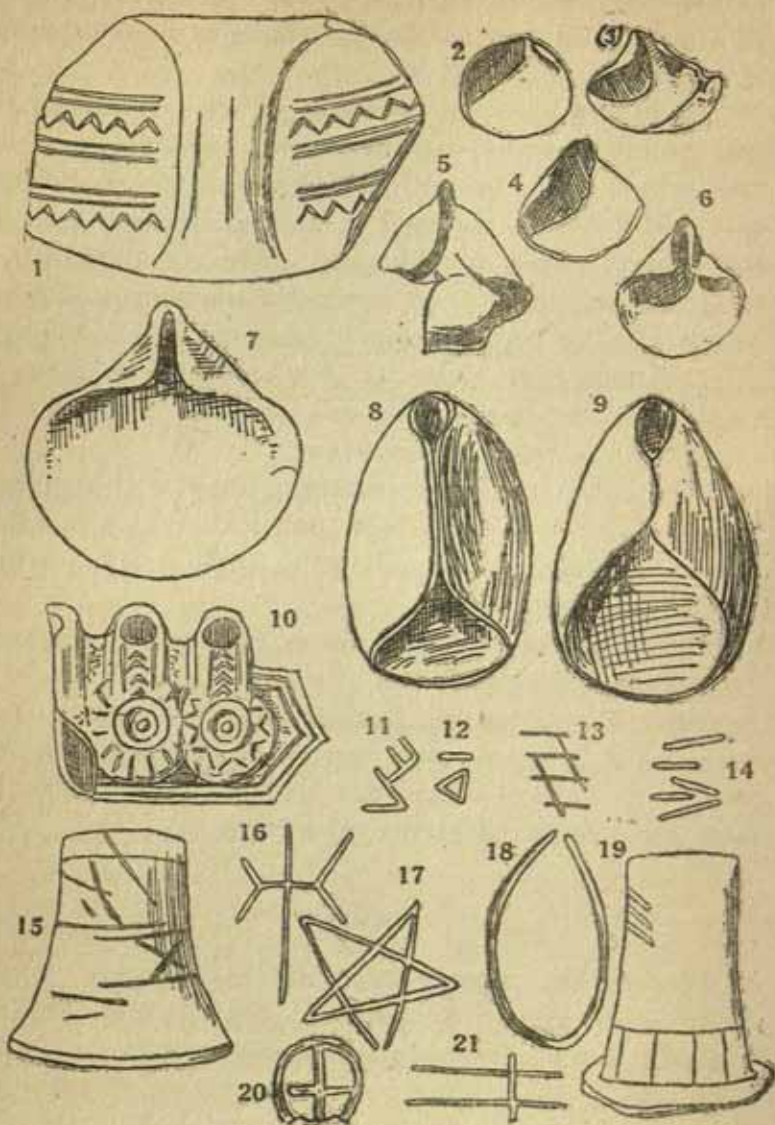 1
2
(3)
4
5
6
7
8
9
10
11
12
13
14
15
16
17
18
19
20
21